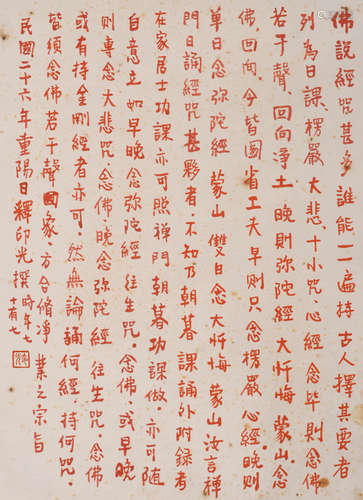 佛說經咒甚多誰能一一遍持古人擇其要者
列為日課楞嚴大悲十小咒心經念畢則念佛
若干聲回向淨土晚則弥陀經大忏悔蒙山念
佛回向今皆圖省工夫早則只念楞嚴心經晚則
單日念弥陀經蒙山雙日念大忏悔蒙山汝言禪
門日誦經咒甚夥者不知乃朝暮課誦外附錄者
在家居士功課亦可照禅門朝暮功課做亦可随
自意立如早晚念弥陀經往生咒念佛或早晚
則專念大悲咒念佛晚念弥陀經往生咒念佛
或有持金剛經者亦可然無論誦何經持何咒
皆須念佛若干聲回象方合脩净業之宗旨
民國二十六年重陽日釋印光撰時年七十有七